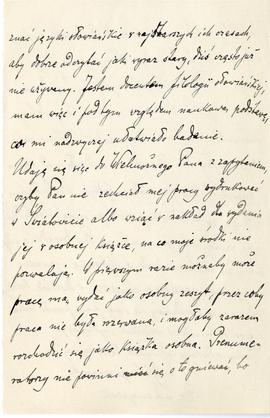 znać języki słowiańskie w najstarszych ich czasach,
aby dobrze odczytać jaki wyraz stary, dziś często już
nie używany. Jestem docentem filologii słowiańskiej,
mam więc i pod tym względem naukową podstawę,
co mi nadzwyczaj ułatwiło badanie.
Udaję się więc do Wielmożnego Pana z zapytaniem,
czyby Pan nie zechciał mej pracy wydrukować
w Światowicie albo wziąć w nakład do wydania
jej w osobnej książce, na co moje środki nie
pozwalają. W pierwszym razie możnaby może
pracę mą wydać jako osobny zeszyt, przez coby
praca nie była rozerwana, i mogłaby zarazem
rozchodzić się jako książka osobna. Prenume-
ratorzy nie powinni się o to gniewać, bo